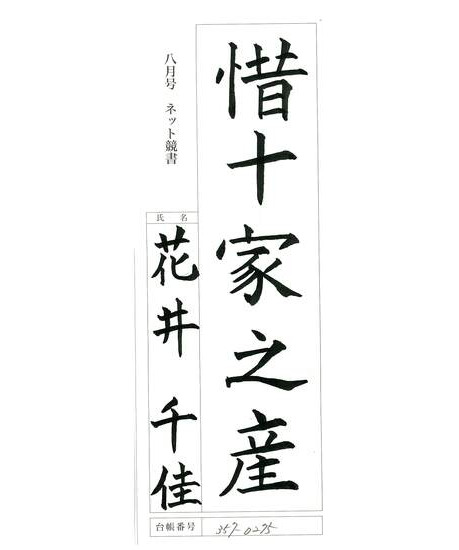 惜十家之産
八月号 ネット競書
氏名
花井 千佳
台帳番号 357-0275